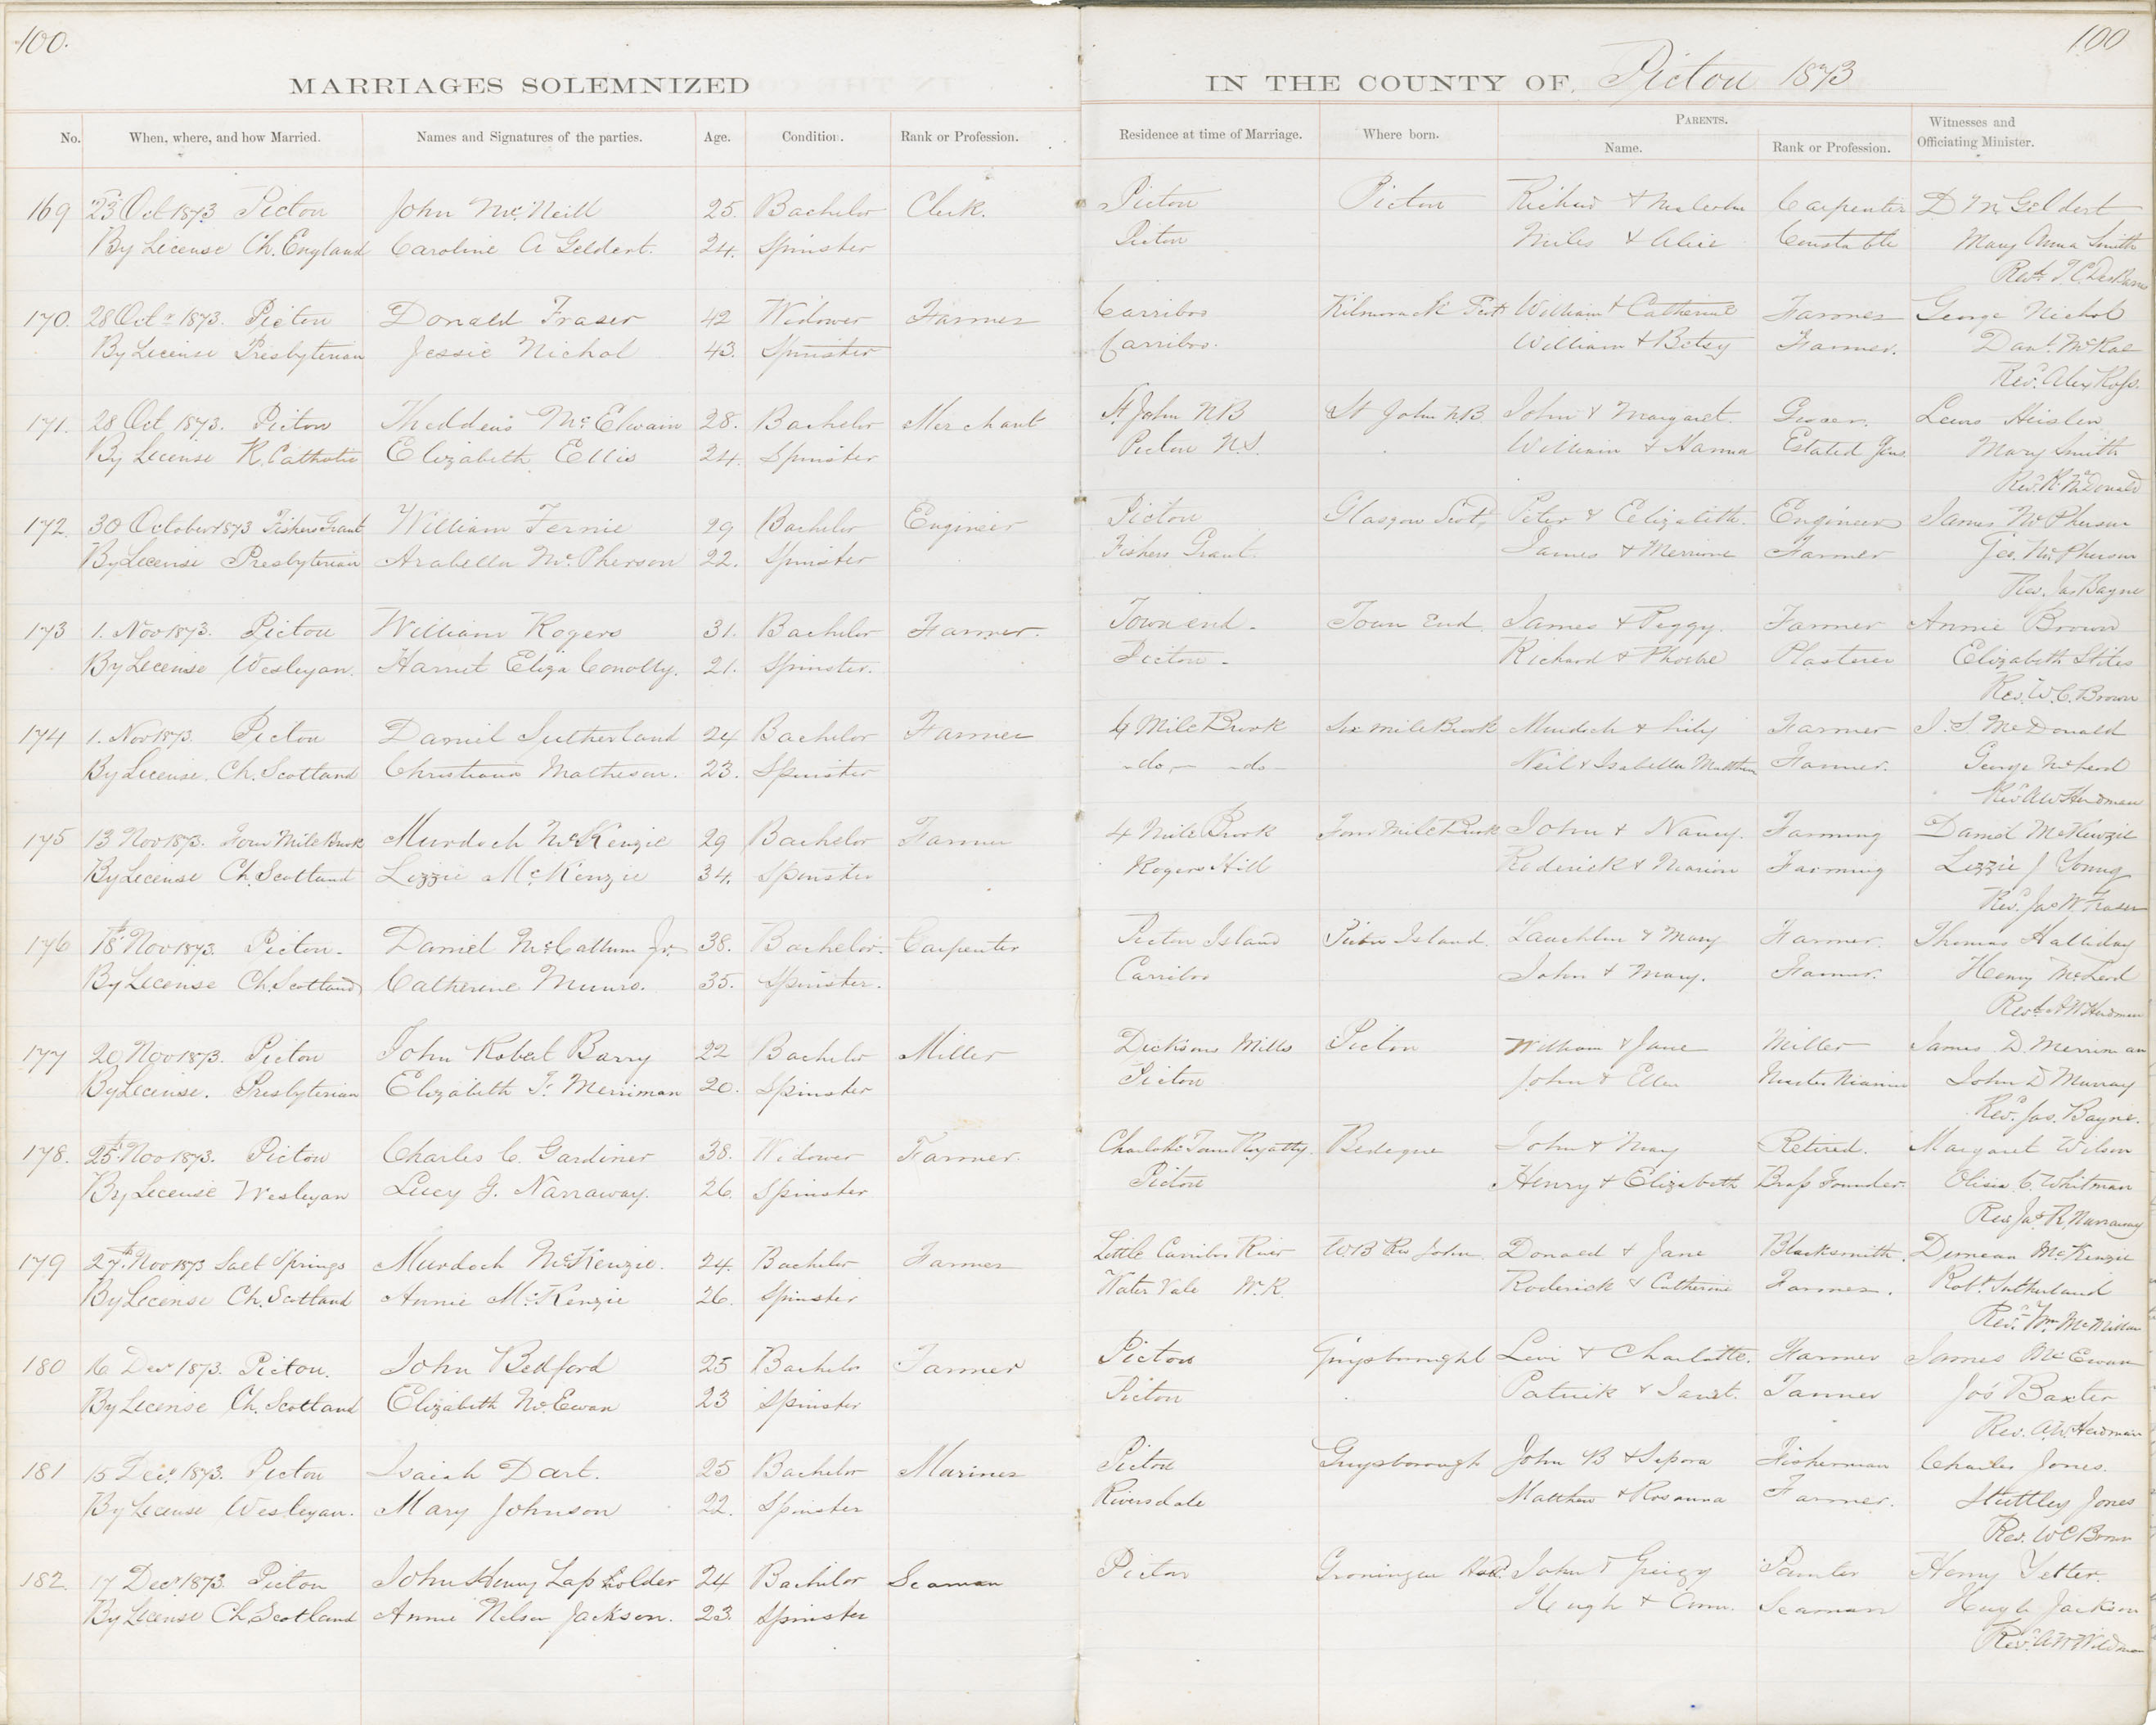 100. 100
MARRIAGES SOLEMNIZED IN THE COUNTY OF Pictou 1873
No. When, where, and how Married. Names and Signatures of the parties. Age. Condition. Rank or Profession. Residence at time of Marriage. Where born. PARENTS. Name. Rank or Profession. Witnesses and Officiating Minister.
169 23d Oct 1873 Pictou John McNeill 25. Bachelor Clerk. Pictou Pictou Richard & Malcolm Carpenter D McGeldert
By License Ch. England Caroline A Geldert. 24. Spinster Pictou Miles & Alice Constable Mary Anna Smith
Revd. T. C.
170. 28 Octr 1873. Pictou Donald Fraser 42 Widower Farmer Carriboo Kilmorack Scot William & Catherine Farmer George Nichol
By License Presbyterian Jessie Nichol 43. Spinster Carriboo. William & Betsy Farmer. Danl. McRae
Revd. Alex Ross.
171. 28 Oct 1873. Pictou McElwain 28. Bachelor Merchant St. John NB St John N.B John & Margaret. Grocer. Lewis
By License R. Catholic Elizabeth Ellis 24. Spinster Pictou N.S. William & Hanna Estated Mary Smith
Revd. R. McDonald
172. 30 October 1873 Fishers Grant William Fernie 29 Bachelor Engineer Pictou Glasgow Scotd. Peter & Elizabeth. Engineer James McPherson
By License Presbyterian Arabella McPherson 22. Spinster Fishers Grant. James & Farmer Geo. McPherson
Rev. Jas Bayne
173 1. Nov 1873. Pictou William Rogers 31. Bachelor Farmer. Town end. Town End James & Peggy. Farmer Annie Brown
By License Wesleyan. Harriet Eliza Conolly. 21. Spinster. Pictou Richard & Phoebe Plasterer Elizabeth Stiles
Rev. W. C. Brown
174 1. Nov 1873. Pictou Daniel Sutherland 24 Bachelor Farmer 4 Mile Brook Six mile Brook Murdoch & Lily Farmer J. S. McDonald
By License. Ch. Scotland Christiana Matheson. 23. Spinster -do- -do- Neil & Isabella Farmer. George McLeod
Revd. A W Herdman
175 13 Nov 1873. Four Mile Brook Murdoch McKenzie 29 Bachelor Farmer 4 Mile Brook Four Mile Brook John & Nancy. Farming Daniel McKenzie
By License Ch. Scotland Lizzie McKenzie 34. Spinster Rogers Hill Roderick & Marion Farming Lizzie J Young
Revd. Jas W. Fraser
176 18th Nov 1873. Pictou. Daniel McCallum Jr. 38. Bachelor. Carpenter Pictou Island Pictou Island. Lauchlin & Mary Farmer. Thomas Halliday
By License Ch. Scotland Catherine Munro. 35. Spinster. Carriboo John & Mary. Farmer. Henry McLeod
Revd. A W Herdman
177 20 Nov 1873. Pictou John Robert Barry 22 Bachelor Miller Dicksons Mills Pictou William & Jane Miller James D. Merriman
By License. Presbyterian Elizabeth F. Merriman 20. Spinster Pictou John & Ellen Master Mariner John D Murray
Revd. Jas. Bayne.
178. 25th Nov 1873. Pictou Charles C. Gardiner 38. Widower Farmer. Charlotte Town Royalty. Bedeque John & Mary Retired. Margaret Wilson
By License Wesleyan Lucy G. Narraway. 26. Spinster Pictou Henry & Elizabeth Brass Founder. C. Whitman
Rev. Jas. R. Narraway
179 27th Nov 1873 Salt Springs Murdoch McKenzie. 24. Bachelor Farmer Little Carriboo River W B Riv John Donald & Jane Blacksmith. Duncan McKenzie
By License Ch. Scotland Annie McKenzie 26. Spinster Water Vale W. R. Roderick & Catherine Farmer. Robt. Sutherland
Revd. Wm McMillan
180 16 Decr 1873. Pictou. John Bedford 25 Bachelor Farmer Pictou Guysborought Levi & Charlotte. Farmer James McEwan
By License Ch. Scotland Elizabeth McEwan 23 Spinster Pictou Patrick & Janet. Tanner Jos Baxter
Rev. A. W. Herdman
181 15 Decr. 1873. Pictou Isaiah Dart. 25 Bachelor Mariner Pictou Guysborough John B & Sepora Fisherman Charles Jones.
By License Wesleyan. Mary Johnson 22. Spinster Riversdale Matthew & Rosanna Farmer. Stuttley Jones
Rev. W C Brown
182. 17 Decr 1873. Pictou John Henry Lapholder 24 Bachelor Seaman Pictou Groningen Holl. John & Painter Henry Yetter.
By License Ch Scotland Annie Nelson Jackson. 23. Spinster Hugh & Ann. Seaman Hugh Jackson
Revd. A W Herdman